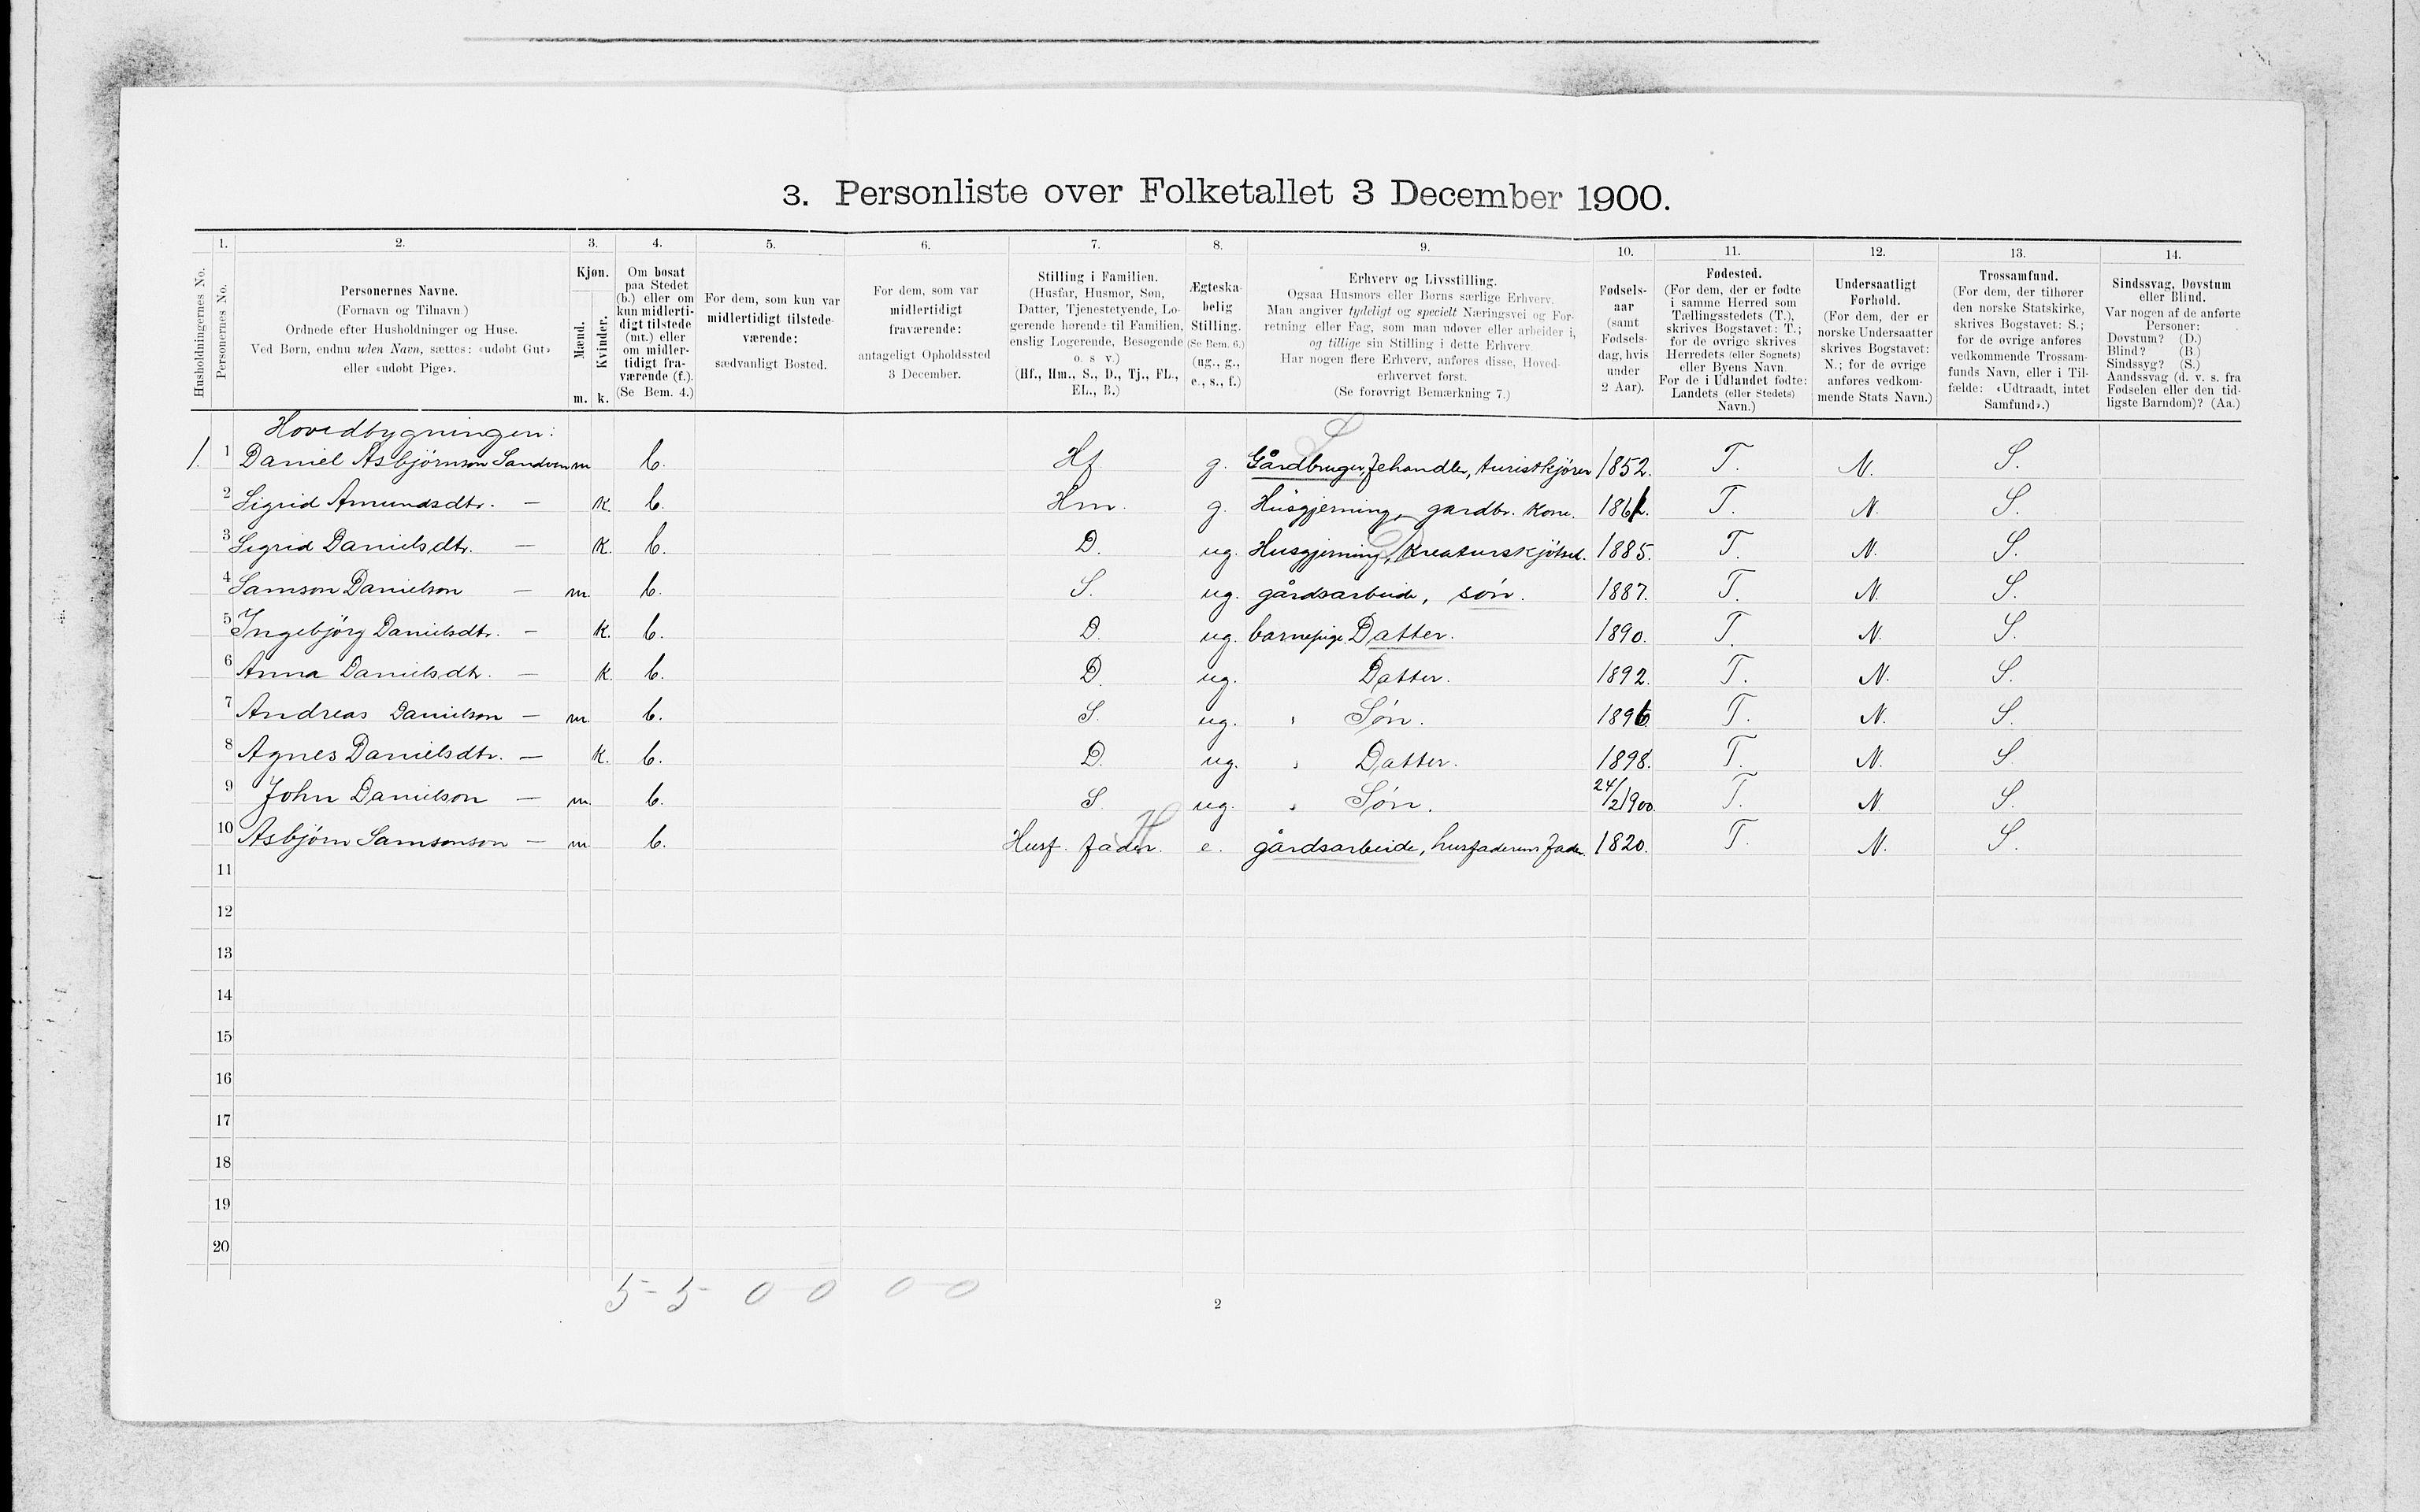 3. Personliste over Folketallet 3 December 1900.
1. 2. 3. 4. 5. 6. 7. 8. 9. 10. 11. 12. 13. 14.
Husholdningernes No.
Personernes No.
Personernes Navne.
(Fornavn og Tilnavn)
Ordnede efter Husholdninger og Huse.
Ved Børn, endnu uden Navn, sættes: «udøbt Gut»
eller «udøbt Pige».
Kjøn.
Mænd.
Kvinder.
m. k.
Om bosat
paa Stedet
(b.) eller om
kun midlerti-
digt tilstede
(mt.) eller
om midler-
tidigt fra-
værende (f.).
(Se Bem. 4.)
For dem, som kun var
midlertidigt tilstede-
værende:
sædvanligt Bosted.
For dem, som var
midlertidigt
fraværende:
antageligt Opholdssted
3 December.
Stilling i Familien.
(Husfar, Husmor, Søn,
Datter, Tjenestetyende, Lo-
gerende hørende til Familien,
enslig Logerende, Besøgende
o. s. v.)
(Hf., Hm., S., D., Tj., FL.,
EL., B.)
Ægteska-
belig
Stilling.
(Se Bem. 6.)
(ug., g.,
e., s., f.)
Erhverv og Livsstilling.
Ogsaa Husmors eller Børns særlige Erhverv.
Man angiver tydeligt og specielt Næringsvei og For-
retning eller Fag, som man udøver eller arbeider i,
og tillige sin Stilling i dette Erhverv
Har nogen flere Erhverv, anføres disse, Hoved-
erhvervet først.
(Se forøvrigt Bemærkning 7.)
Fødsels-
aar
(samt
Fødsels-
dag, hvis
under
2 Aar).
Fødested.
(For dem, der er fødte
i samme Herred som
Tællingsstedets (T.),
skrives Bogstavet: T.;
for de øvrige skrives
Herredets (eller Sognets)
eller Byens Navn
For de i Udlandet fødte:
Landets (eller Stedets)
Navn.)
Undersaatligt
Forhold.
(For dem, der er
norske Undersaatter
skrives Bogstavet:
N.; for de øvrige
anføres vedkom-
mende Stats Navn.)
Trossamfund.
(For dem, der tilhører
den norske Statskirke,
skrives Bogstavet: S.;
for de øvrige anføres
vedkommende Trossam-
funds Navn, eller i Til-
fælde: «Udtraadt, intet
Samfund».)
Sindssvag, Døvstum
eller Blind.
Var nogen af de anførte
Personer:
Døvstum? (D.)
Blind? (B.)
Sindssyg? (S.)
Aandssvag (d. v. s. fra
Fødselen eller den tid-
ligste Barndom)? (Aa.)
Hovedbygningen:
1. 1 Daniel Asbjörnson Sandven m b. Hf g. Gårdbruger, fehandler, turistkjörer 1852. T. N. S.
2 Sigrid Amundsdtr. — k. b. Hm. g. Husgjerning, gardbr. kone. T. N. S.
3 Sigrid Danielsdtr. — k. b. D. ug. Husgjerning, kreaturskjötsel. 1885. T. N. S.
4 Samson Danielson — m. b. S. ug. gårdsarbeide, sön. 1887. T. N. S.
5 Ingebjörg Danielsdtr. — k. b. D. ug. barnepige Datter. 1890. T. N. S.
6 Anna Danielsdtr. — k. b. D. ug. Datter. 1892. T. N. S.
7 Andreas Danielson — m. b. S. ug. Sön. 1896 T. N. S.
8 Agnes Danielsdtr. — k. b. D. ug. Datter. 1898. T. N. S.
9 John Danielson — m. b. S. ug. Sön. 24/2 1900. T. N. S.
10 Asbjörn Samsonson — m b. Husf. fader. e. gårdsarbeide, husfaderens fader. 1820. T. N. S.
11
12
13
14
15
16
17
18
19
20
5 - 5 0 0 0 - 0
2